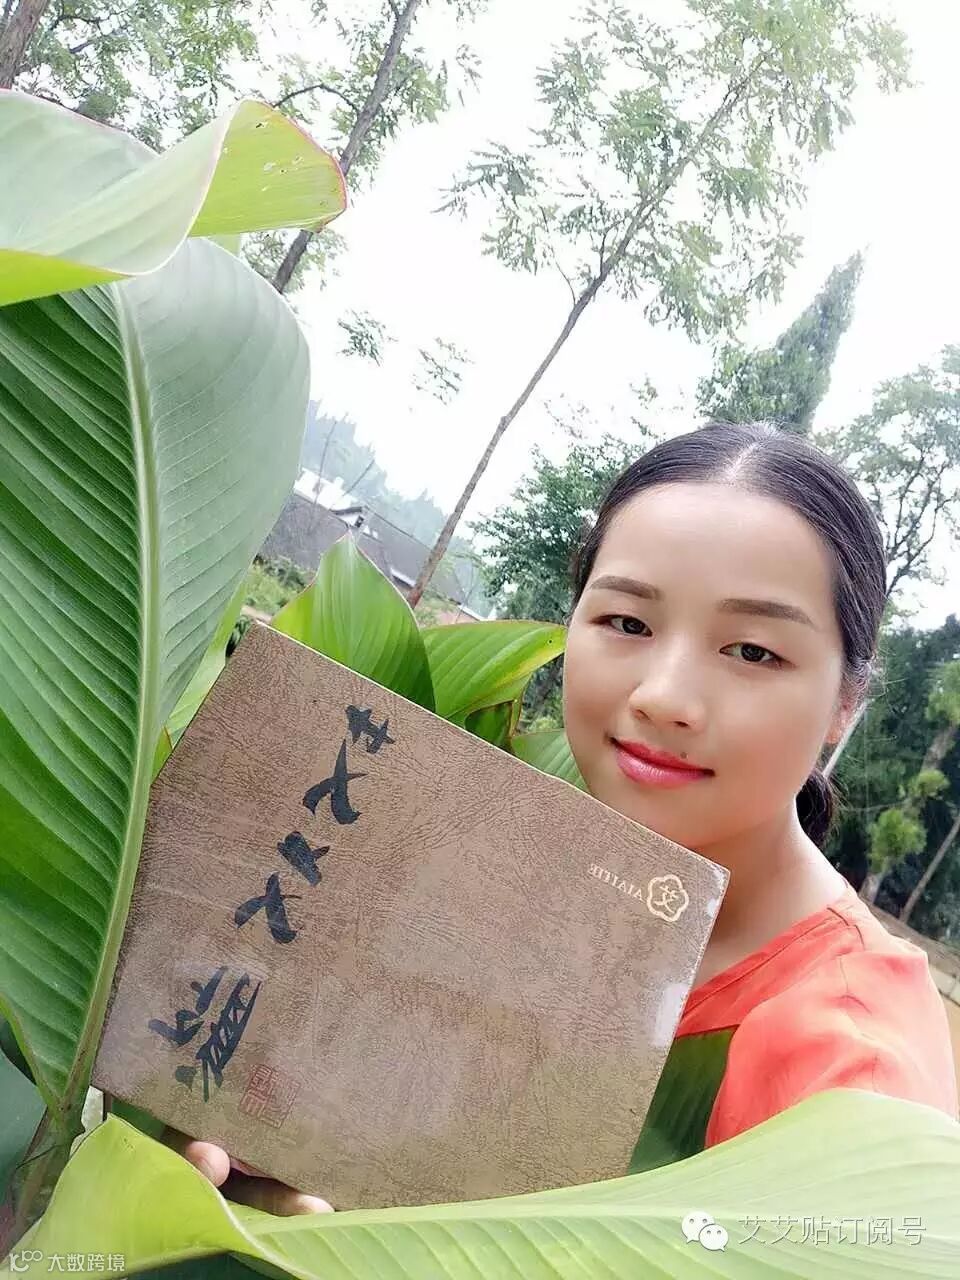 艾艾貼
艾
AIAITIE
艾艾贴订阅号
大数跨境